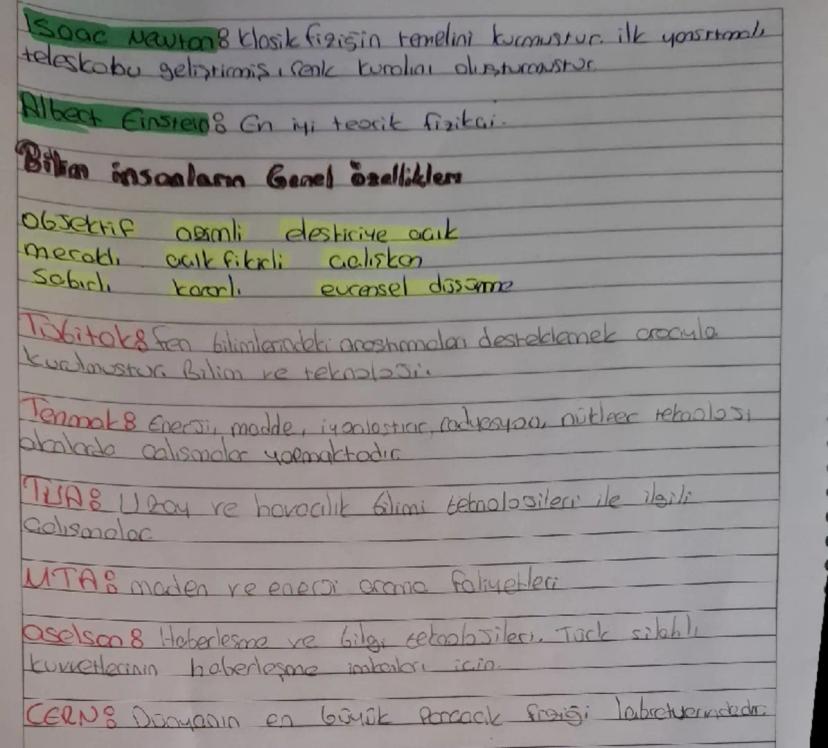 Isaac Newton: klasik fiziğin temelini kurmuştur. ilk yansıtmalı
teleskobu geliştirmiş, renk kuralını oluşturmuştur
Albert Einstein: En iyi teorik fizikçi.
Bilim insanların Genel özellikleri
objektif azimli eleştiriye açık
meraklı açık fikirli çalışkan
Sabırlı kararlı evrensel düşünme
Tübitak: Fen bilimlerindeki araştırmaları desteklemek amacıyla
kurulmuştur. Bilim ve teknoloji.
Tenmak: Enerji, madde, iyonlaştırıcı, radyasyon, nükleer teknoloji
alanlarda çalışmalar yapmaktadır
TUA: Uzay ve havacılık bilimi teknolojileri ile ilgili
çalışmalar
MTA: maden ve enerji arama faliyetleri
aselsan: Haberleşme ve bilgi teknolojileri. Türk silahlı
kuvvetlerinin haberleşme imkanları için.
CERN: Dünyanın en büyük Parçacık fiziği